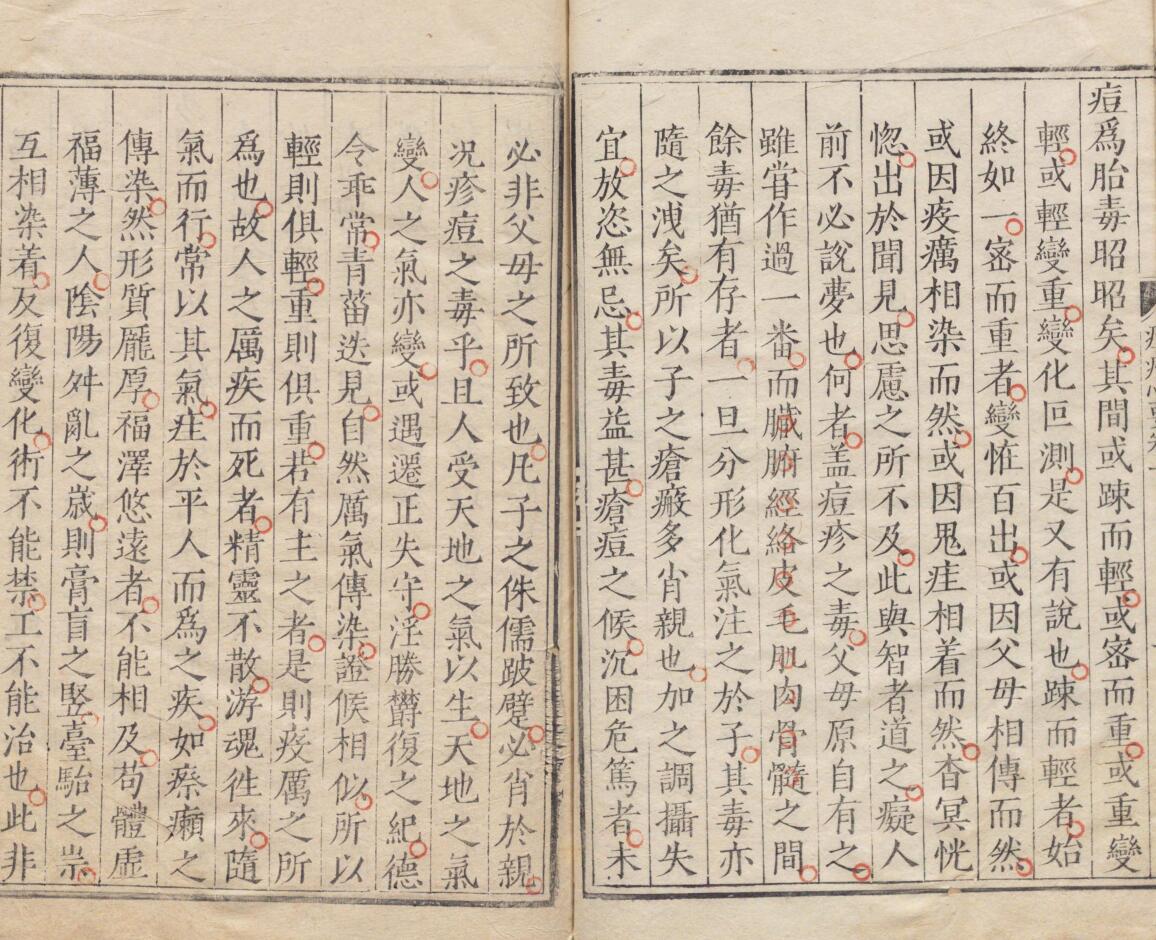 痘爲胎毒昭昭矣其間或踈而輕或密而重或重變
輕或輕變重變化叵測是又有說也踈而輕者始
終如一密而重者變恠百出或因父母相傳而然
或因疫癘相染而然或因鬼疰相着而然杳冥恍
惚出於聞見思慮之所不及此與智者道之癡人
前不必說夢也何者盖痘疹之毒父母原自有之
雖甞作過一番而臟腑經絡皮毛肌肉骨髓之間
餘毒猶有存者一旦分形化氣注之於子其毒亦
隨之洩矣所以子之瘡瘢多肖親也加之調攝失
宜放恣無忌其毒益甚瘡痘之候沉困危篤者未
必非父母之所致也凡子之侏儒跛躄必肖於親
况疹痘之毒乎且人受天地之氣以生天地之氣
變人之氣亦變或遇遷正失守淫勝欝復之紀德
令乖常青菑迭見自然厲氣傳染證候相似所以
輕則俱輕重則俱重若有主之者是則疫厲之所
爲也故人之厲疾而死者精靈不散游魂徃來隨
氣而行常以其氣疰於平人而爲之疾如瘵癩之
傳染然形質厖厚福澤悠遠者不能相及苟體虛
福薄之人陰陽舛亂之歲則膏肓之竪臺駘之祟
互相染着反復變化術不能禁工不能治也此非